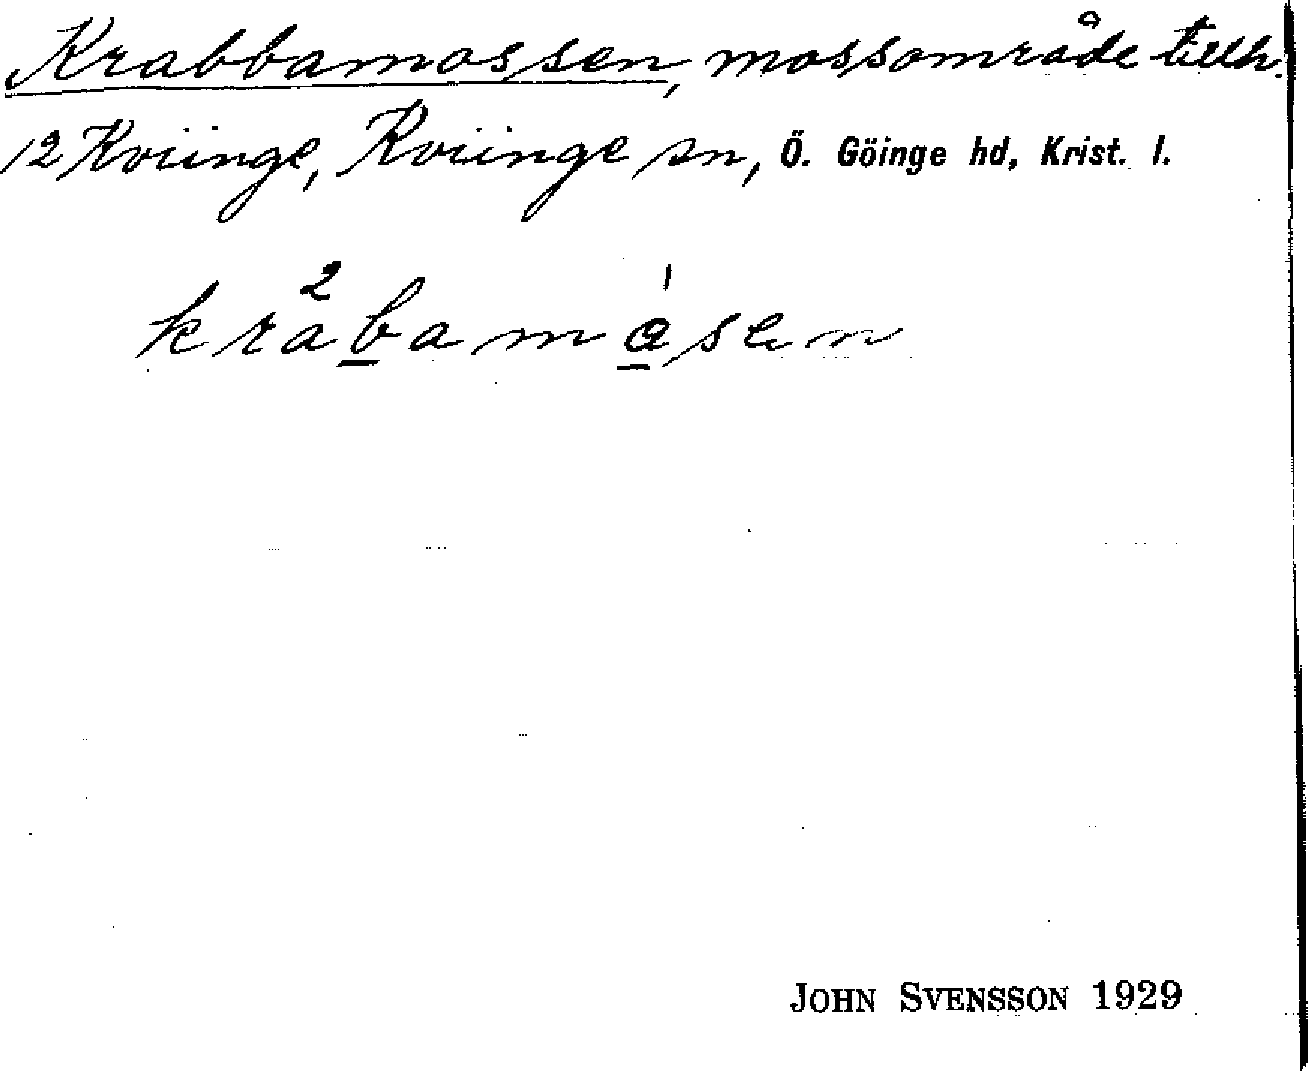 Krabbamossen, mossområde tillh.
12 Kviinge, Kviinge sn, Ö. Göinge hd, Krist. l.
JOHN SVENSSON 1929